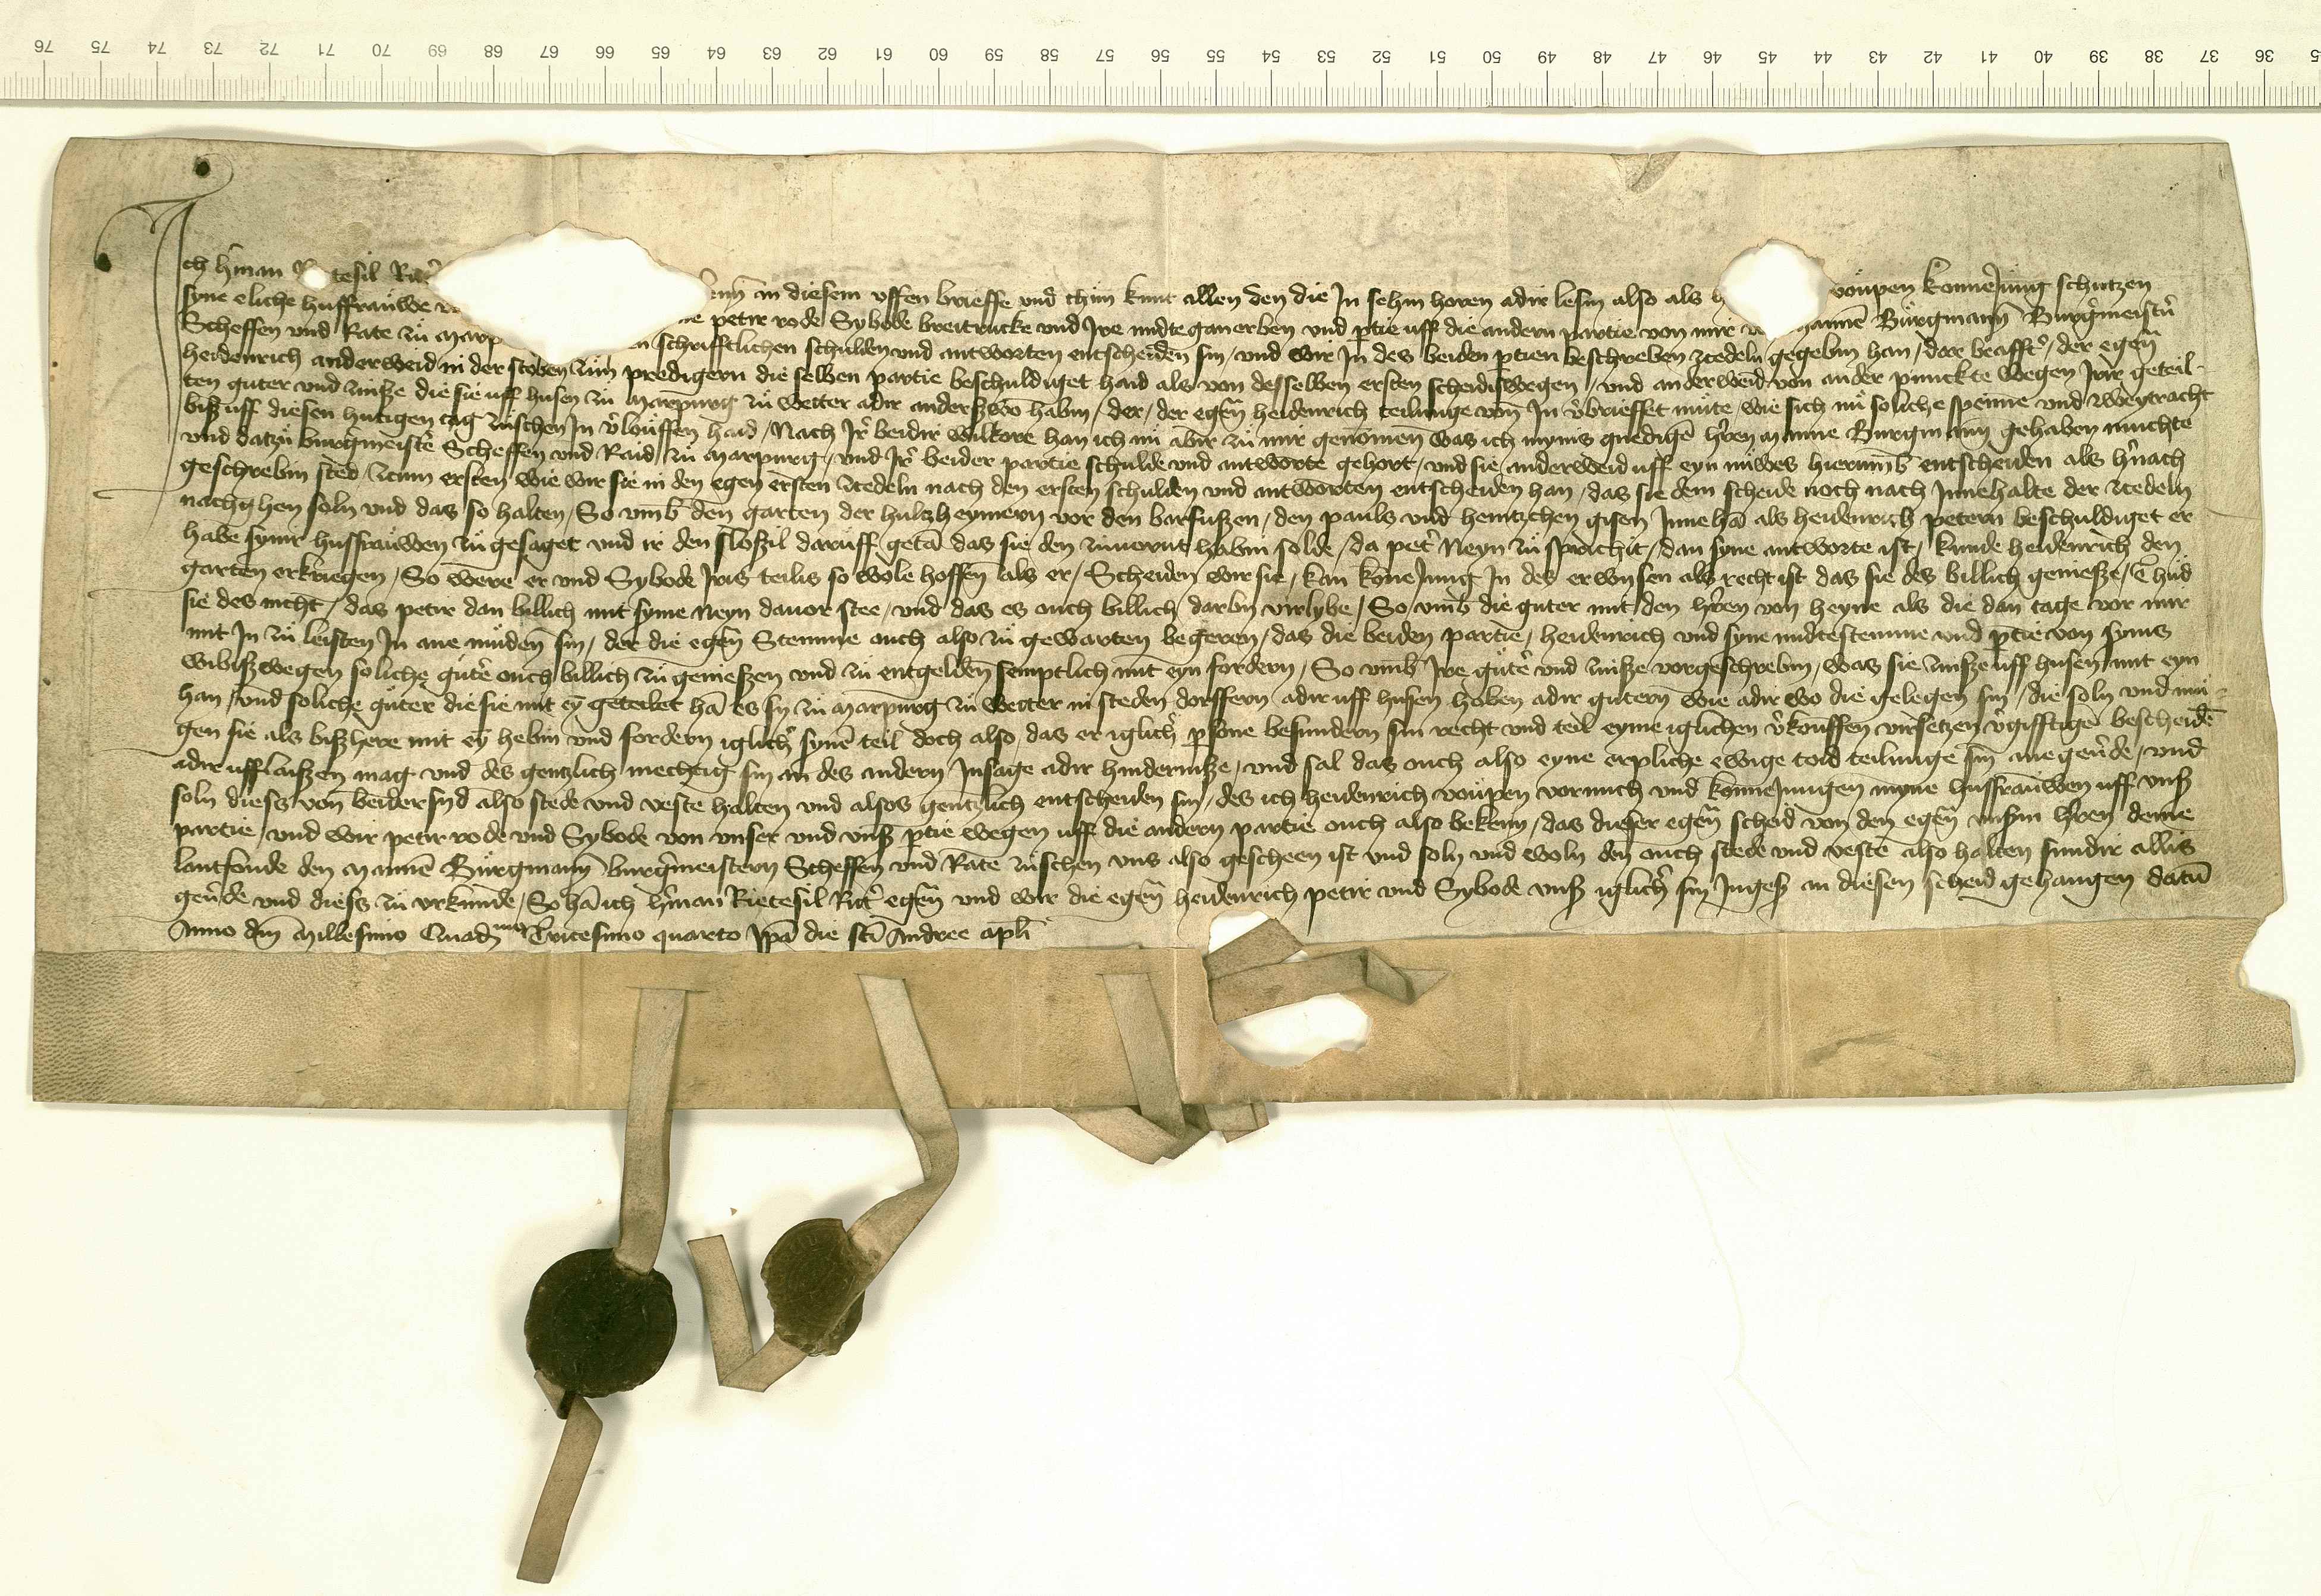 76 75 74 73 72 71 70 69 68 67 66 65 64 63 62 61 60 59 58 57 56 55 54 53 52 51 50 49 48 47 46 45 44 43 42 41 40 39 38 37 36
Ich h'man tesil Rit' enn an diesem uffen brieffe und thun kunt allen den die Jn sehin horen adir lesin also als voüpen konneJüng schutzen
syne eliche hussfraüwe petir rode Sybode breitrucke und Jre midte ganerben und ptie uff die andern partie von mir mannē Bürgmann̄ Burg'meist'n
Scheffen und Rate zü Marp schrifftlichen schulden und antworten entscheiden sin / und wir Jn des beiden ptien beschreben zcedeln gegebin han / der egen̄
heidenrich anderweid in der stoben züm predigern die selben partie beschuldiget haid als von desselben ersten scheidißwegen / und anderweid von ander punckte wegen Jrir geteil-
ten guter und zinße die sie uff husen zü Marpurg zü Wetter adir anderßwo habin / der / der egen̄ heidenrich teilunge von Jn v'brieffet müte / wie sich nü soliche spenne und zweytracht
biß uff diesen hutigen tag züschen Jn v'louffen haid / Nach Jr' beidir wilkore han ich nü abir zü mir genomen was ich myns gnedigē h'ren Manne Burgmann gehaben muchte
und datzü burg'meist'e Scheffen und Raid zü Marpurg / und Jr' beider partie schulde und antworte gehort / und sie anderweid uff eyn nüwes hierumb entscheiden als h'nach
geschrebin sted zcum ersten wie wir sie in den egen̄ ersten zcedeln nach den ersten schulden und antworten entscheiden han / das sie dem scheide noch nach Jnnehalte der zcedeln
nachgehen soln und das so halten / So umb den garten der hultzheymern vor den barfußen / den pauls und heintzchen gisen Jnne hā als heidenrich petern beschuldiget er
habe syner hussfrauwen zü gesaget und ir den sloßil daruff getā das sie den habin solde / da pet' Neyn zü sprichit / dan syne antworte ist / kunde heidenrich den
garten erkriegen / So were er und Sybode Jris teilis so wole hoffen als er / Scheiden wir sie / kan konneJung Jn des erwysen als recht ist das sie des billich genieße / Thüd
sie des nicht / das petir dan billich mit syme Neyn davor stee / und das es ouch billich darbii virlybe / So umb die guter mit den h'ren von heyne als die dan tage vor mir
mit Jn zü leisten Jn ane müden sin / der die egen̄ Stemme ouch also zü gewarten begeren / das die beiden partie / heidenrich und syne midtestemme und ptie von syns
wibiß wegen soliche güt'e ouch billich zü genießen und zü entgelden semptlich mit eyn fordern / So umb Jre güt'e und zinße vorgeschrebin / was sie zinße uff husen mit eyn
han / und soliche güter die sie mit eȳ geteilet hā es sy zü Marpurg zü Wetter in steden dorffern adir uff husen hoben adir gutern wie adir wo die gelegen sin / die soln und mü-
gen sie als bißhere mit eȳ hebin und fordern iglich' synē teil doch also / das er iglich' psone besundern sin recht und teil eyme iglichen v'kouffen virsetzen v'gifftigē bescheidē
adir ufflaißen mag und des gentzlich mechtig sin an des andern Jnsage adir hindernisse / und sal das ouch also eyne erpliche ewige toid teilunge sin ane gev'de / und
soln dieß von beidersyd also stede und veste halten und alsos gentzlich entscheiden sin / des ich heidenrich voüpen vor mich und konneJungen myne hussfrauwen uff unß
partie / und wir petir rode und Sybode von unser und unß ptie wegen uff die andern partie ouch also bekenn / das dieser egen̄ scheid von den egen̄ unsern h'ren deme
lantfoude den Mannē Bürgmann̄ burg'meistern Scheffen und Rate züschen uns also gescheen ist und soln und woln den ouch stede und veste also halten sundir allis
gev'de und dieß zü urkunde / So hā ich h'man Rietesil Rit' egen̄ und wir die egen̄ heidenrich petir und Sybode unß iglich' sin Jngeß an diesen scheid gehangen datū
Anno dn̄i Millesimo Quadmo Tricesimo quarto Jpā die sc̄i Andree apl̄i